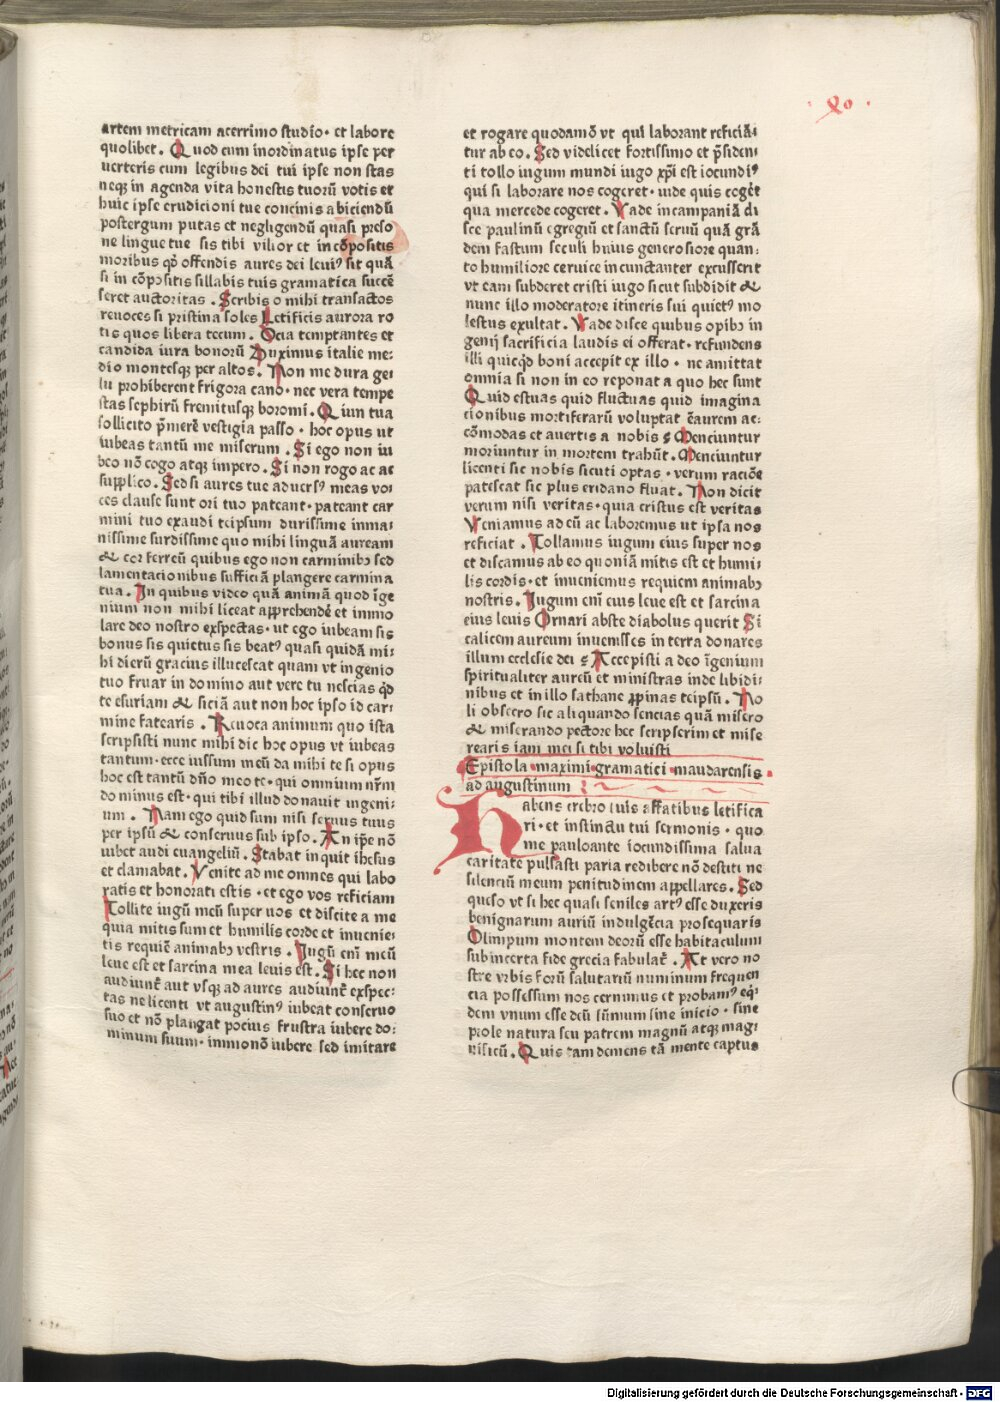 · xo ·
artem metricam acerrimo studio· et labore
quolibet. Quod cum inordinatus ipse per
uerteris cum legibus dei tui ipse non stas
neqꝫ in agenda vita honestis tuorū votis et
huic ipse erudicioni tue concinis abiciendū
postergum putas et negligendū quasi preso
ne lingue tue sis tibi vilior et in cōpositis
moribus qd̄ offendis aures dei leuiꝰ sit quā
si in cōpositis sillabis tuis gramatica succē
seret auctoritas . Scribis o mihi transactos
reuoces si pristina soles Letificis aurora ro
tis quos libera tecum. Ocia temptantes et
candida iura bonorū Duximus italie me-
dio montesqꝫ per altos. Non me dura ge
lu prohiberent frigora cano· nec vera tempe
stas sephirū fremitusqꝫ boromi. Qiun tua
sollicito p̄merē vestigia passo · hoc opus ut
iubeas tantū me miserum . Si ego non iu
beo nō cogo atqꝫ impero. Si non rogo ac ac
supplico. Sed si aures tue aduersꝰ meas vo-
ces clause sunt ori tuo pateant· pateant car
mini tuo exaudi teipsum durissime inma-
nissime surdissime quo mihi linguā auream
& cor ferreū quibus ego non carminibꝫ sed
lamentacionibus sufficiā plangere carmina
tua. In quibus video quā animā quod īge
nium non mihi liceat apprehendē et immo
lare deo nostro exspectas· ut ego iubeam sis
bonus sis quietus sis beatꝰ quasi quidā mi-
hi dierū gracius illucescat quam vt ingenio
tuo fruar in domino aut vere tu nescias qd̄
te esuriam & siciā aut non hoc ipso id car-
mine fatearis . Reuoca animum quo ista
scripsisti nunc mihi dic hoc opus vt iubeas
tantum· ecce iussum meū da mihi te si opus
hoc est tantū dn̄o meo te· qui omnium nr̄m
dominus est· qui tibi illud donauit ingeni-
um . Nam ego quid sum nisi seruus tuus
per ipsū & conseruus sub ipso. An ip̄e nō
iubet audi euangeliū. Stabat inquit ihesus
et clamabat. Venite ad me omnes qui labo
ratis et honorati estis · et ego vos reficiam
Tollite iugū meū super uos et discite a me
quia mitis sum et humilis corde et inuenie-
tis requiē animabꝫ vestris . Jugū em̄ meū
leue est et sarcina mea leuis est. Si hec non
audiunt̄ aut vsqꝫ ad aures audiunt̄ exspec-
tas ne licenti vt augustinꝰ iubeat conseruo
suo et nō plangat pocius frustra iubere do-
minum suum· immo nō iubere sed imitare
et rogare quodamō vt qui laborant reficiā-
tur ab eo. Sed videlicet fortissimo et p̄siden-
ti tollo iugum mundi iugo xp̄i est iocundiꝰ
qui si laborare nos cogeret· uide quis cogēt
qua mercede cogeret. Vade in campaniā di
sce paulinū egregiū et sanctū seruū quā grā
dem fastum seculi huius generosiore quan-
to humiliore ceruice incunctanter excusserit
vt eam subderet cristi iugo sicut subdidit &
nunc illo moderatore itineris sui quietꝰ mo
lestus exultat. Vade disce quibus opibꝫ in
genij sacrificia laudis ei offerat· refundens
illi quicqd̄ boni accepit ex illo · ne amittat
omnia si non in eo reponat a quo hec sunt
Quid estuas quid fluctuas quid imagina
cionibus mortiferarū voluptat ēaurem ac-
cōmodas et auertis a nobis ⁊ Menciuntur
moriuntur in mortem trahūt. Menciuntur
licenti sic nobis sicuti optas· verum raciōe
patescat sic plus eridano fluat. Non dicit
verum nisi veritas· quia cristus est veritas
Veniamus ad eū ac laboremus ut ipsa nos
reficiat . Tollamus iugum eius super nos
et discamus ab eo quoniā mitis est et humi-
lis cordis· et inueniemus requiem animabꝫ
nostris. Jugum em̄ eius leue est et sarcina
eius leuis Ornari abste diabolus querit Si
calicem aureum inuenisses in terra donares
illum ecclesie dei ⁊ Accepisti a deo īgenium
spiritualiter aureū et ministras inde libidi-
nibus et in illo sathane ꝓpinas teipsū. No
li obsecro sic aliquando sencias quā misero
& miserando pectore hec scripserim et mise
rearis iam mei si tibi voluisti
Epistola maximi gramatici maudarensis
ad augustinum
Habens crebro tuis affatibus letifica
ri· et instinctu tui sermonis · quo
me pauloante iocundissima salua
caritate pulsasti paria redibere nō destiti ne
silenciū meum penitudinem appellares. Sed
queso vt si hec quasi seniles artꝰ esse duxeris
benignarum auriū indulgēcia prosequaris
Olimpum montem deorū esse habitaculum
sub incerta fide grecia fabulat̄. At vero no
stre vrbis forū salutariū numinum frequen
cia possessum nos cernimus et probamꝰ eq̇-
dem vnum esse deū sūmum sine inicio · sine
prole natura seu patrem magnū atqꝫ mag-
nificū. Quis tam demens tā mente captus
Digitalisierung gefördert durch die Deutsche Forschungsgemeinschaft - DFG